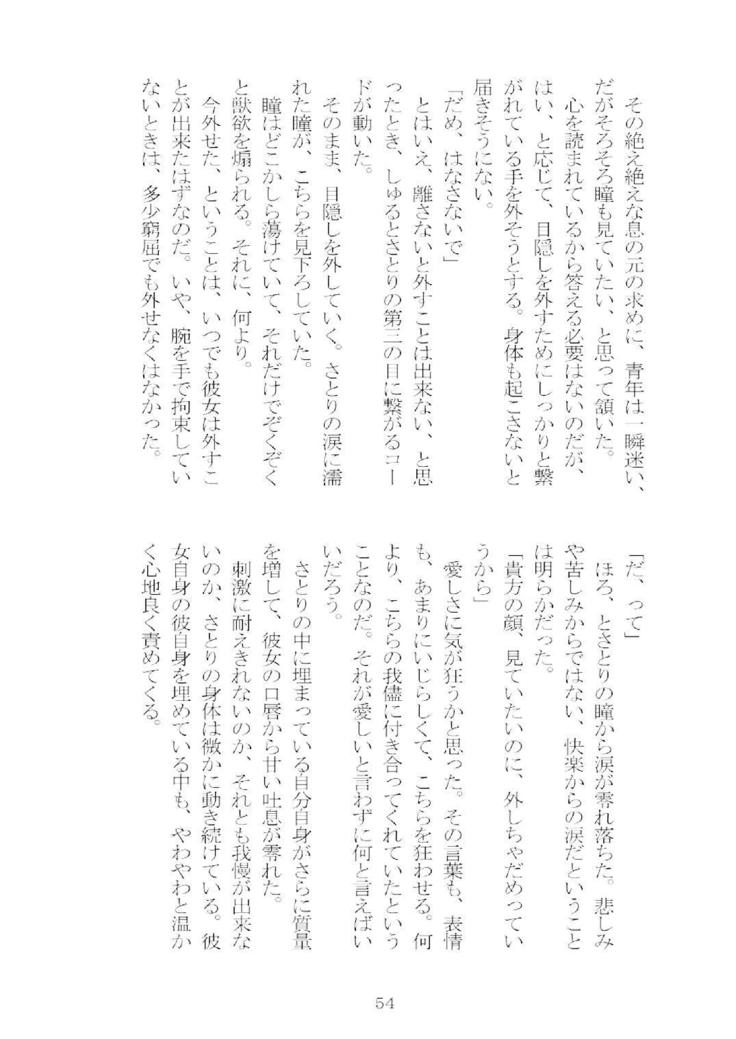 その絶え絶えな息の元の求めに、青年は一瞬迷い、
だがそろそろ瞳も見ていたい、と思って頷いた。
心を読まれているから答える必要はないのだが、
はい、と応じて、目隠しを外すためにしっかりと繋
がれている手を外そうとする。身体も起こさないと
届きそうにない。
「だめ、はなさないで」
とはいえ、離さないと外すことは出来ない、と思
ったとき、しゅるとさとりの第三の目に繋がるコー
ドが動いた。
そのまま、目隠しを外していく。さとりの涙に濡
れた瞳が、こちらを見下ろしていた。
瞳はどこかしら蕩けていて、それだけでぞくぞく
と獣欲を煽られる。それに、何より。
今外せた、ということは、いつでも彼女は外すこ
とが出来たはずなのだ。いや、腕を手で拘束してい
ないときは、多少窮屈でも外せなくはなかった。
「だ、って」
ほろ、とさとりの瞳から涙が零れ落ちた。悲しみ
や苦しみからではない、快楽からの涙だということ
は明らかだった。
「貴方の顔、見ていたいのに、外しちゃだめってい
うから」
愛しさに気が狂うかと思った。その言葉も、表情
も、あまりにいじらしくて、こちらを狂わせる。何
より、こちらの我儘に付き合ってくれていたという
ことなのだ。それが愛しいと言わずに何と言えばい
いだろう。
さとりの中に埋まっている自分自身がさらに質量
を増して、彼女の口唇から甘い吐息が零れた。
刺激に耐えきれないのか、それとも我慢が出来な
いのか、さとりの身体は微かに動き続けている。彼
女自身の彼自身を埋めている中も、やわやわと温か
く心地良く責めてくる。
54